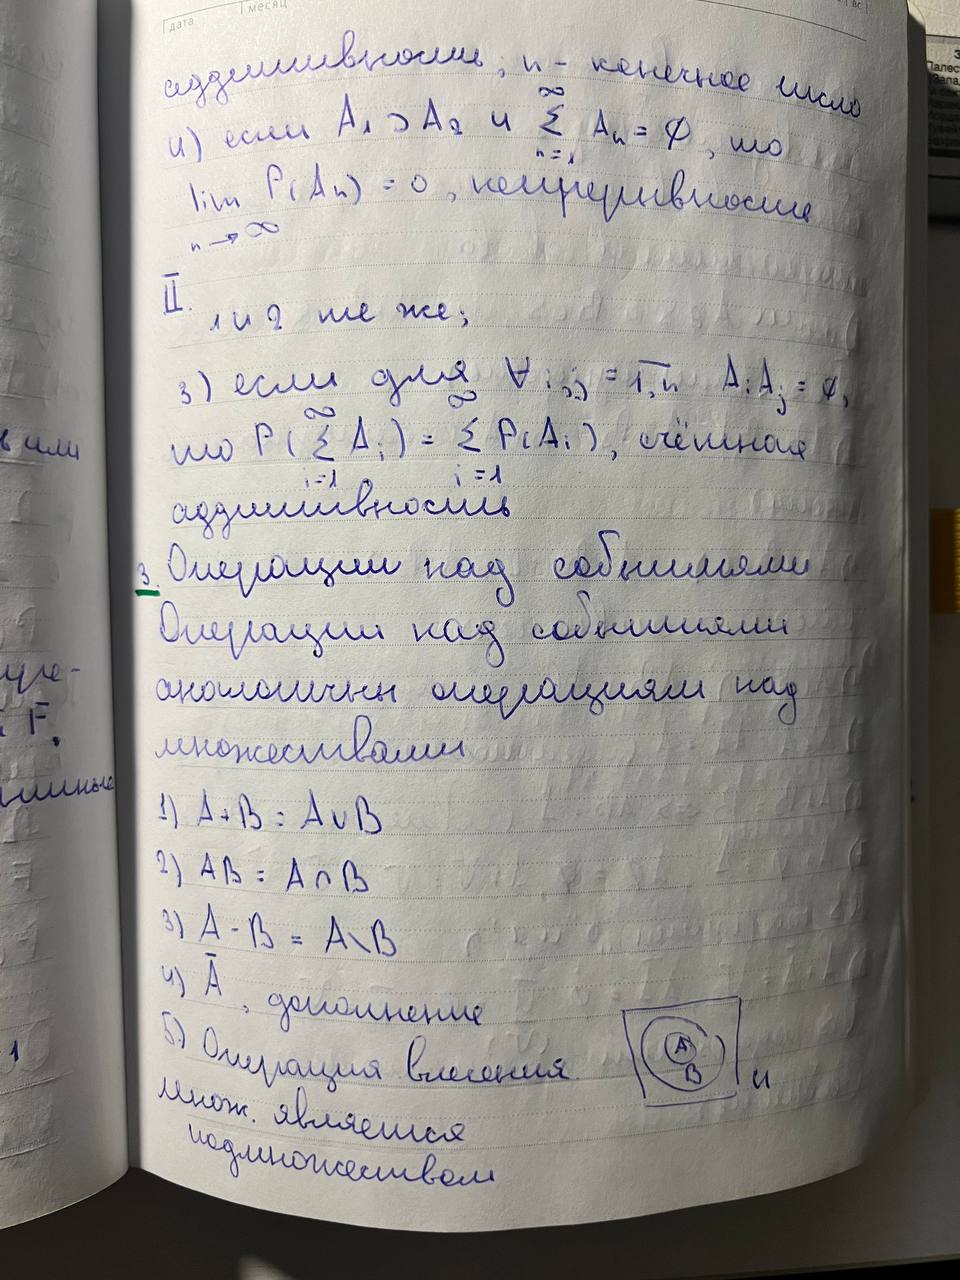 дата
месяц
вс
аддитивность; n - конечное число
4) если A₁⊃A₂ и ∞ Σ n=1 Aₙ = ∅, то
lim n→∞ P(Aₙ) = 0, непрерывность
II.
1 и 2 те же;
3) если для ∀ i,j = 1,n AᵢAⱼ = ∅,
то P(∞ Σ i=1 Aᵢ) = ∞ Σ i=1 P(Aᵢ), счётная
аддитивность
3. Операции над событиями
Операции над событиями
аналогичны операциям над
множествами
1) A+B = A∪B
2) AB = A∩B
3) A - B = A\B
4) Ā, дополнение
5) Операция вложения
A
B
множ. является
подмножеством